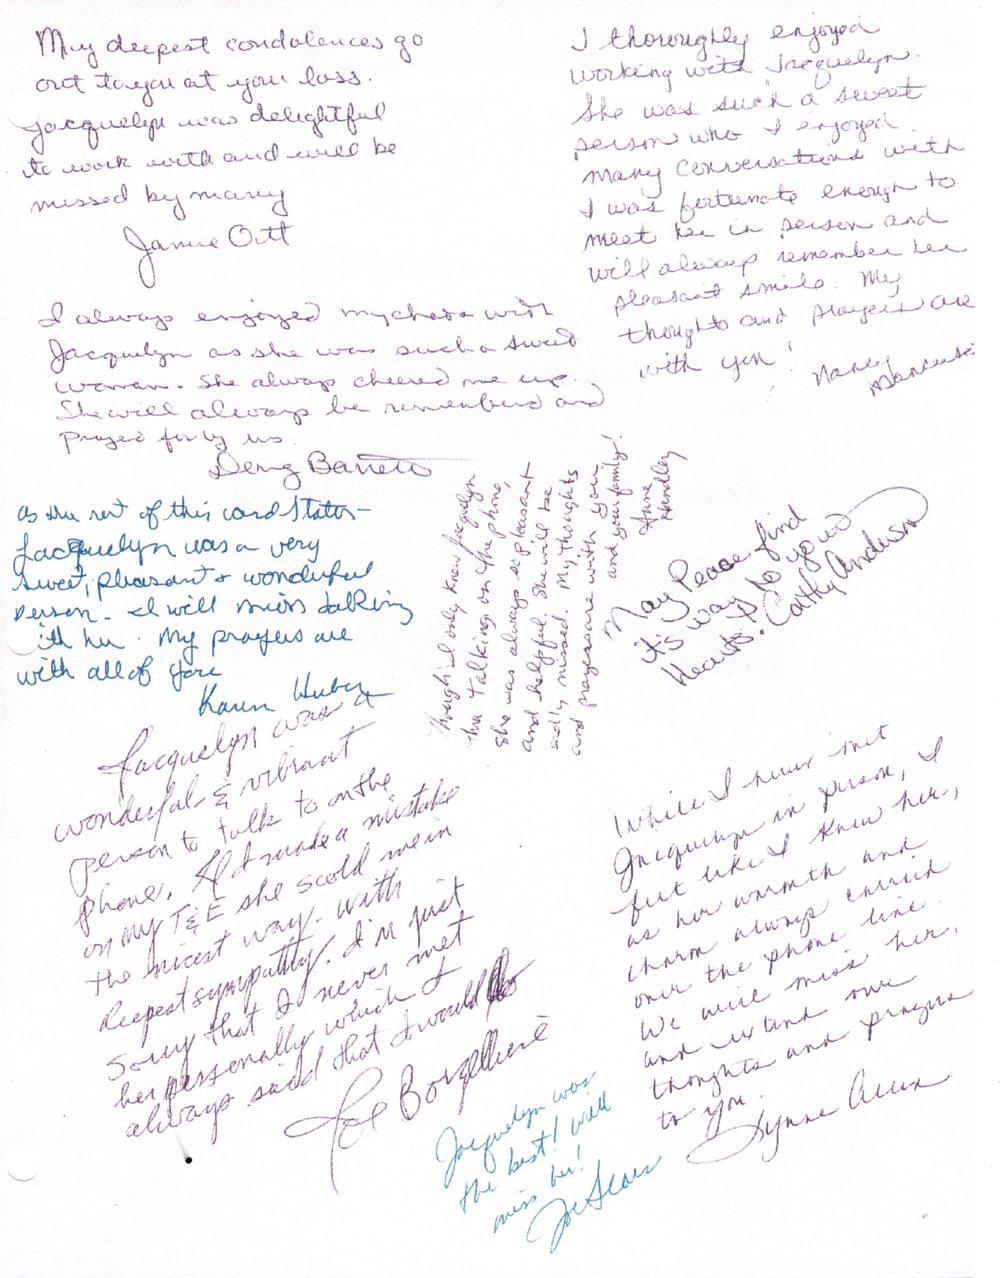 My deepest condolences go
out to you at your loss.
Jacquelyn was delightful
to work with and will be
missed by many
Janice Ott
I thoroughly enjoyed
working with Jacquelyn.
She was such a sweet
person who I enjoyed
many conversations with
I was fortunate enough to
meet her in person and
will always remember her
pleasant smile. My
thoughts and prayers are
with you!
Nancy
I always enjoyed my chats with
Jacquelyn as she was such a sweet
woman. She always cheered me up.
She will always be remembered and
prayed for by us.
Barrett
as the rest of this card states-
Jacquelyn was a very
sweet, pleasant & wonderful
person. I will miss talking
with her. My prayers are
with all of you
Karen Huber
Though I only knew Jacquelyn
thru talking on the phone,
she was always so pleasant
and helpful. She will be
sadly missed. My thoughts
and prayers are with you
and your family!
Anne
Hundley
May Peace find
it's way to your
Hearts. Cathy Anderson
Jacquelyn was a
wonderful & vibrant
person to talk to on the
phone. If I made a mistake
on my T&E she scold me in
the nicest way. With
deepest sympathy. I'm just
sorry that I never met
her personally which I
always said that I would do
Joe Borzelliere
While I never met
Jacquelyn in person, I
felt like I knew her,
as her warmth and
charm always carried
over the phone line.
We will miss her,
and extend our
thoughts and prayers
to you.
Lynne Allen
Jacquelyn was
the best! I will
miss her!
Joe Sears